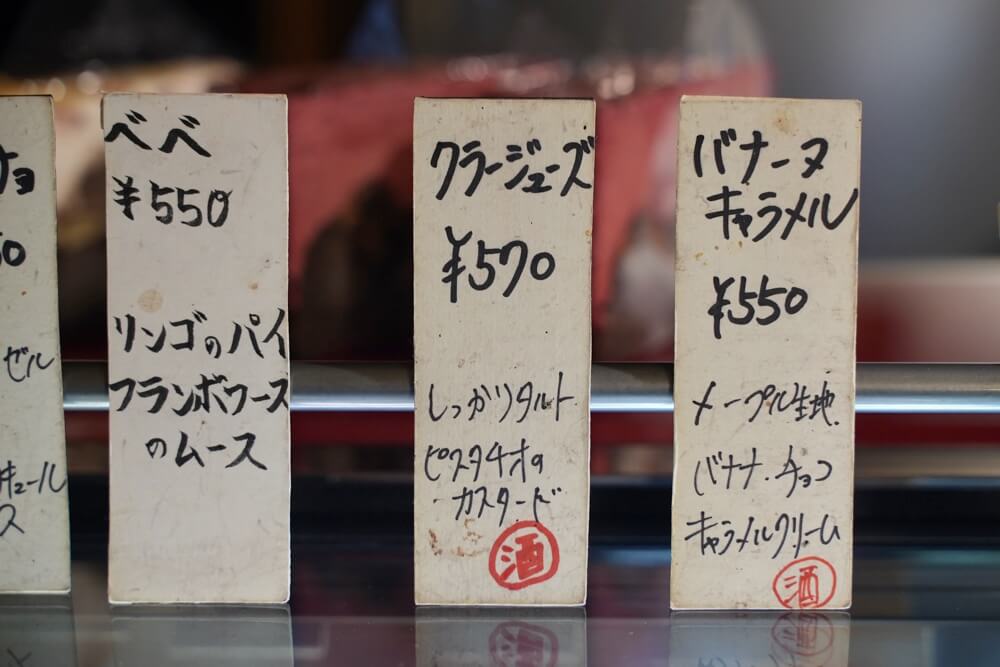 チョ
50
ゼル
キュール
ス
ベベ
¥550
リンゴのパイ
フランボワーズ
のムース
クラージューズ
¥570
しっかりタルト
ピスタチオの
カスタード
酒
バナーヌ
キャラメル
¥550
メープル生地
バナナ・チョコ
キャラメルクリーム
酒